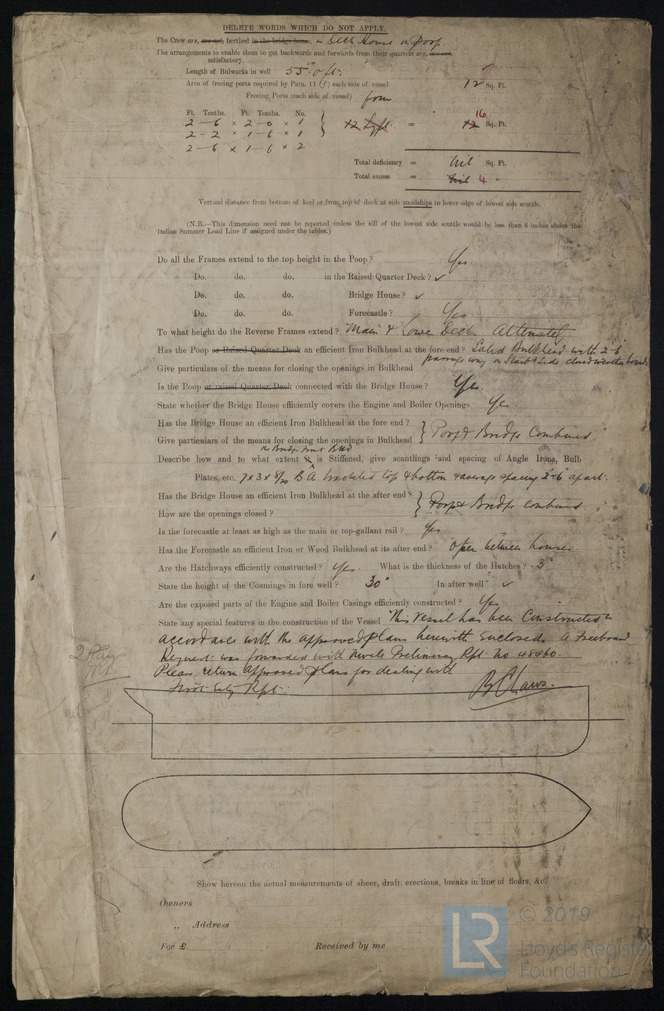 DELETE WORDS WHICH DO NOT APPLY.
The Crew are, are not, berthed in the bridge house, in Deck House in Poop
The arrangements to enable them to get backwards and forwards from their quarters are, are not
satisfactory.
Length of Bulwarks in well 55' 0 ft.
Area of freeing ports required by Para. 11 (5) each side of vessel 12 Sq. Ft.
Freeing Ports (each side of vessel) four
Ft. Tenths. Ft. Tenths. No.
2 - 6 × 2 - 0 × 1
2 - 2 × 1 - 6 × 1 } 12 Sq ft = 12 16 Sq. Ft.
2 - 6 × 1 - 6 × 2
Total deficiency = nil Sq. Ft.
Total excess = nil 4 "
Vertical distance from bottom of keel or from top of deck at side amidships to lower edge of lowest side scuttle.
(N.B.—This dimension need not be reported unless the sill of the lowest side scuttle would be less than 6 inches above the
Indian Summer Load Line if assigned under the tables.)
Do all the Frames extend to the top height in the Poop? Yes
Do. do. do. in the Raised Quarter Deck? ✓
Do. do. do. Bridge House? ✓
Do. do. do. Forecastle? Yes
To what height do the Reverse Frames extend? Main & Lower Deck Alternately
Has the Poop or Raised Quarter Deck an efficient Iron Bulkhead at the fore end? Bulkhead with 2-6
Give particulars of the means for closing the openings in Bulkhead passage way on Starbd Side closed
Is the Poop or raised Quarter Deck connected with the Bridge House? Yes.
State whether the Bridge House efficiently covers the Engine and Boiler Openings Yes
Has the Bridge House an efficient Iron Bulkhead at the fore end?
Give particulars of the means for closing the openings in Bulkhead } Poop & Bridge Combined
the Bridge Front Blkd
Describe how and to what extent it is Stiffened, give scantlings and spacing of Angle Irons, Bulb
Plates, etc. 7 x 3 x 8/20 B A bracketed top & bottom & average spacing 2'-6" apart.
Has the Bridge House an efficient Iron Bulkhead at the after end?
How are the openings closed? } Poop & Bridge combined
Is the forecastle at least as high as the main or top-gallant rail? Yes
Has the Forecastle an efficient Iron or Wood Bulkhead at its after end? Open between houses
Are the Hatchways efficiently constructed? Yes What is the thickness of the Hatches? 3"
State the height of the Coamings in fore well? 30" In after well? ✓
Are the exposed parts of the Engine and Boiler Casings efficiently constructed? Yes
State any special features in the construction of the Vessel This Vessel has been Constructed in
accordance with the approved plans herewith enclosed. A Freeboard
Request was forwarded with Preliminary Rpt. No 48460.
Please return Approved plans for dealing with
First Entry Rpt.
Show hereon the actual measurements of sheer, draft, erections, breaks in line of floors, &c.
Owners
„ Address
Fee £ : : Received by me
LR
© 2019
Lloyd's Register
Foundation